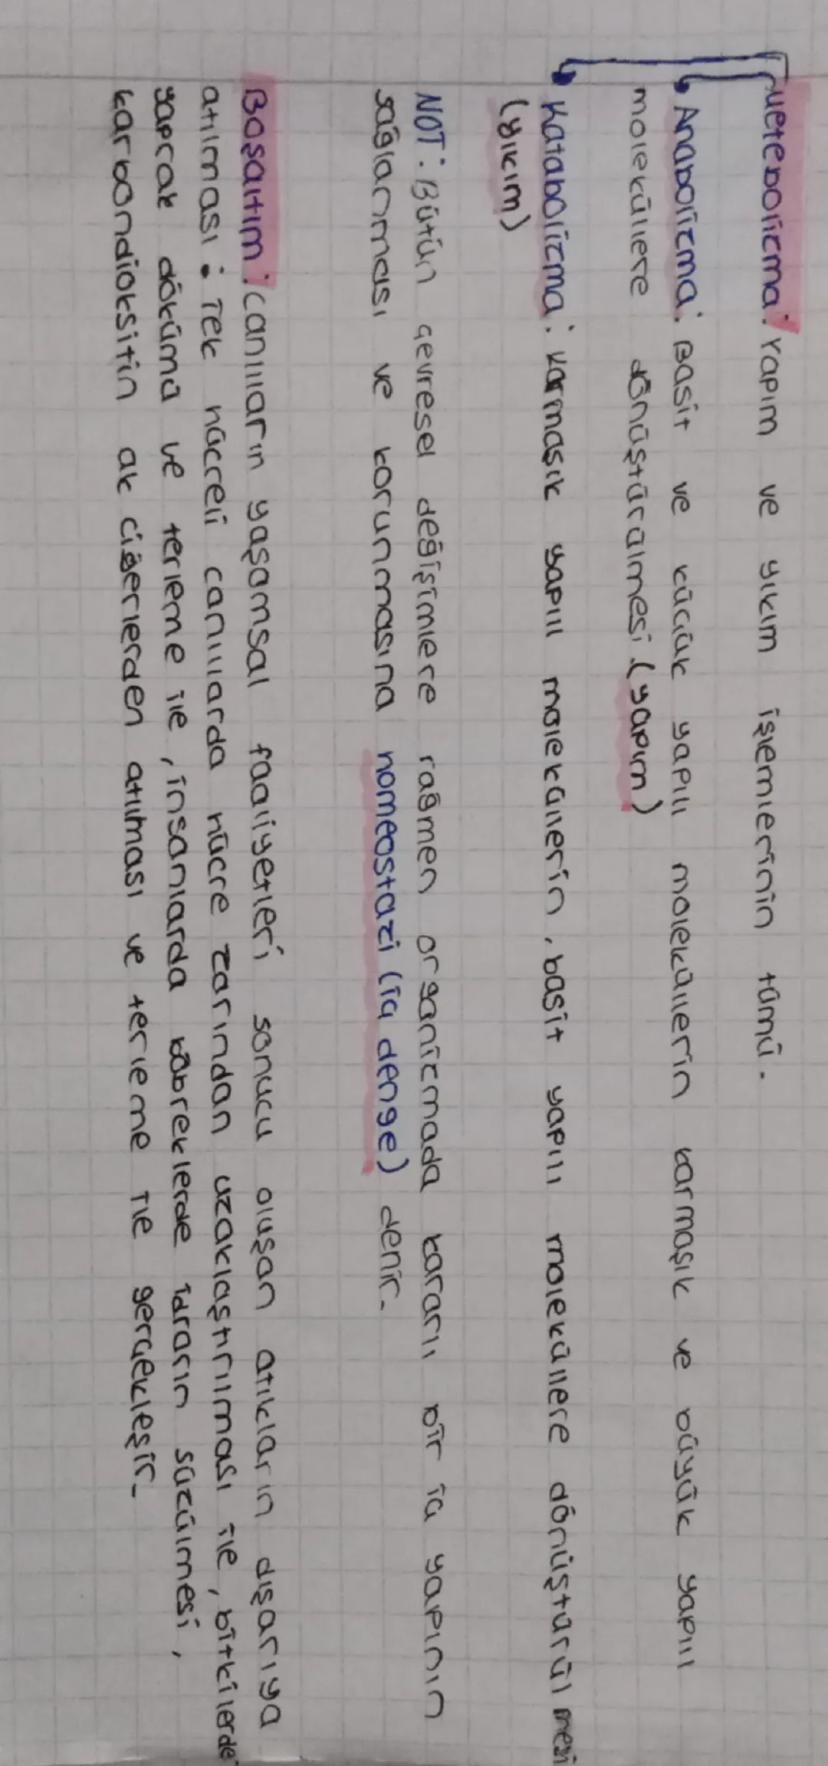 Metebolizma: Yapım ve yıkım işlemlerinin tümü.
Anabolizma: Basit ve küçük yapılı moleküllerin karmaşık ve büyük yapılı
moleküllere dönüştürülmesi. (yapım)
Katabolizma: Karmaşık yapılı moleküllerin, basit yapılı moleküllere dönüştürülmesi
(yıkım)
NOT: Bütün çevresel değişimlere rağmen organizmada kararlı bir iç yapının
sağlanması ve korunmasına homeostazi (iç denge) denir.
Boşaltım: Canlıların yaşamsal faaliyetleri sonucu oluşan atıkların dışarıya
atılması: Tek hücreli canlılarda hücre zarından uzaklaştırılması ile, bitkilerde
yaprak dökümü ve terleme ile, insanlarda böbreklerde idrarın süzülmesi,
karbondioksitin ak ciğerlerden atılması ve terleme ile gerçekleşir.